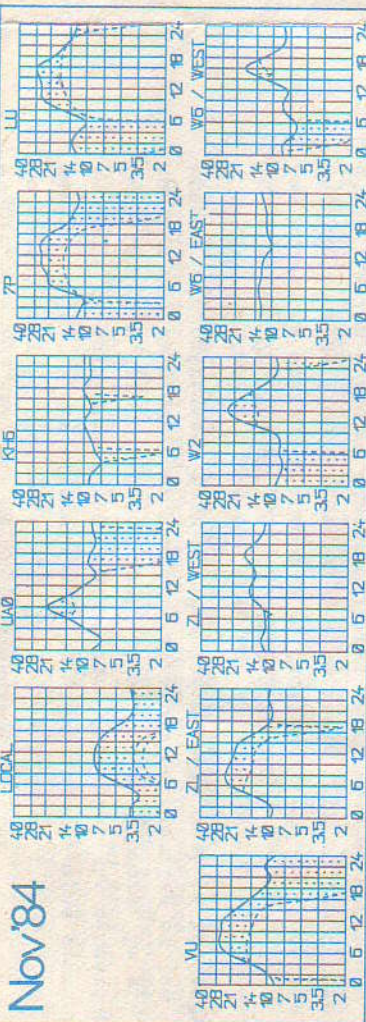 Nov'84
LOCAL
40
28
21
14
10
7
5
3.5
2
0 6 12 18 24
UAØ
40
28
21
14
10
7
5
3.5
2
0 6 12 18 24
KH6
40
28
21
14
10
7
5
3.5
2
0 6 12 18 24
7P
40
28
21
14
10
7
5
3.5
2
0 6 12 18 24
LU
40
28
21
14
10
7
5
3.5
2
0 6 12 18 24
VU
40
28
21
14
10
7
5
3.5
2
0 6 12 18 24
ZL / EAST
40
28
21
14
10
7
5
3.5
2
0 6 12 18 24
ZL / WEST
40
28
21
14
10
7
5
3.5
2
0 6 12 18 24
W2
40
28
21
14
10
7
5
3.5
2
0 6 12 18 24
W6 / EAST
40
28
21
14
10
7
5
3.5
2
0 6 12 18 24
W6 / WEST
40
28
21
14
10
7
5
3.5
2
0 6 12 18 24